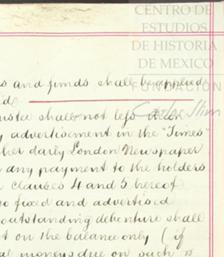 CENTRO DE
ESTUDIOS
DE HISTORIA
DE MEXICO
FUNDACIÓN
s and funds shall be applied
id
ustee shall not less
y advertisement in the "Times"
her daily London Newspaper
any payment to the holders
Clauses 4 and 5 hereof
so fixed and advertised
outstanding debenture shall
t on the balance only (if
al moneys due on such